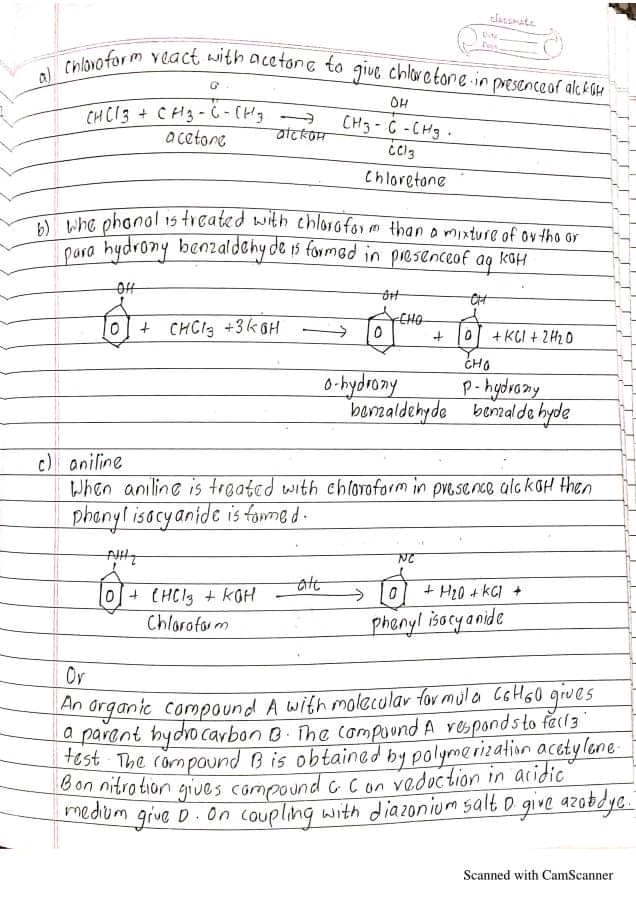 classmate
Date
Page
a) Chloroform react with acetone to give chloretone in presence of alc kOH
O
OH
CHCl3 + CH3 - C - CH3 → CH3 - C - CH3 .
acetone
alc kOH
CCl3
Chloretone
b) Whe phonol is treated with chloroform than a mixture of ortho or
para hydroxy benzaldehyde is formed in presence of aq KOH
OH
OH
OH
CHO
O + CHCl3 + 3KOH → O + O + KCl + 2H2O
CHO
o-hydroxy
p-hydroxy
benzaldehyde
benzaldehyde
c) aniline
When aniline is treated with chloroform in presence alc kOH then
phenyl isocyanide is formed.
NH2
NC
O + CHCl3 + KOH alc → O + H2O + KCl +
Chloroform
phenyl isocyanide
Or
An organic compound A with molecular formula C6H6O gives
a parent hydrocarbon B. The compound A responds to fecl3
test. The compound B is obtained by polymerization acetylene.
B on nitration gives compound C C on reduction in acidic
medium give D. On coupling with diazonium salt D give azobdye.
Scanned with CamScanner